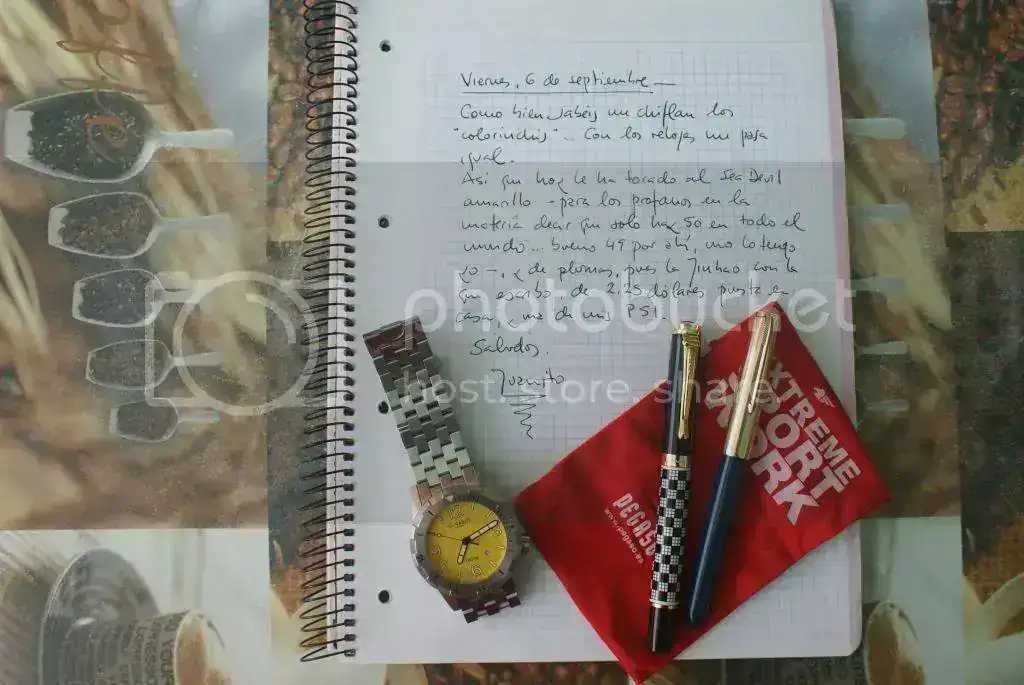 Viernes, 6 de septiembre
Como bien sabéis me chiflan los
"colorinchis"... Con los relojes me pasa
igual.
Así que hoy le ha tocado al Sea Devil
amarillo - para los profanos en la
materia decir que solo hay 50 en todo el
mundo... bueno 49 por ahí, uno lo tengo
yo -, y de plumas, pues la Jinhao con la
que escribo, de 2.25 dólares puesta en
casa, y una de mis P51.
Saludos.
Juanito
photobucket
host. store. share.
EXTREME
SPORT
WORK
PEGASO